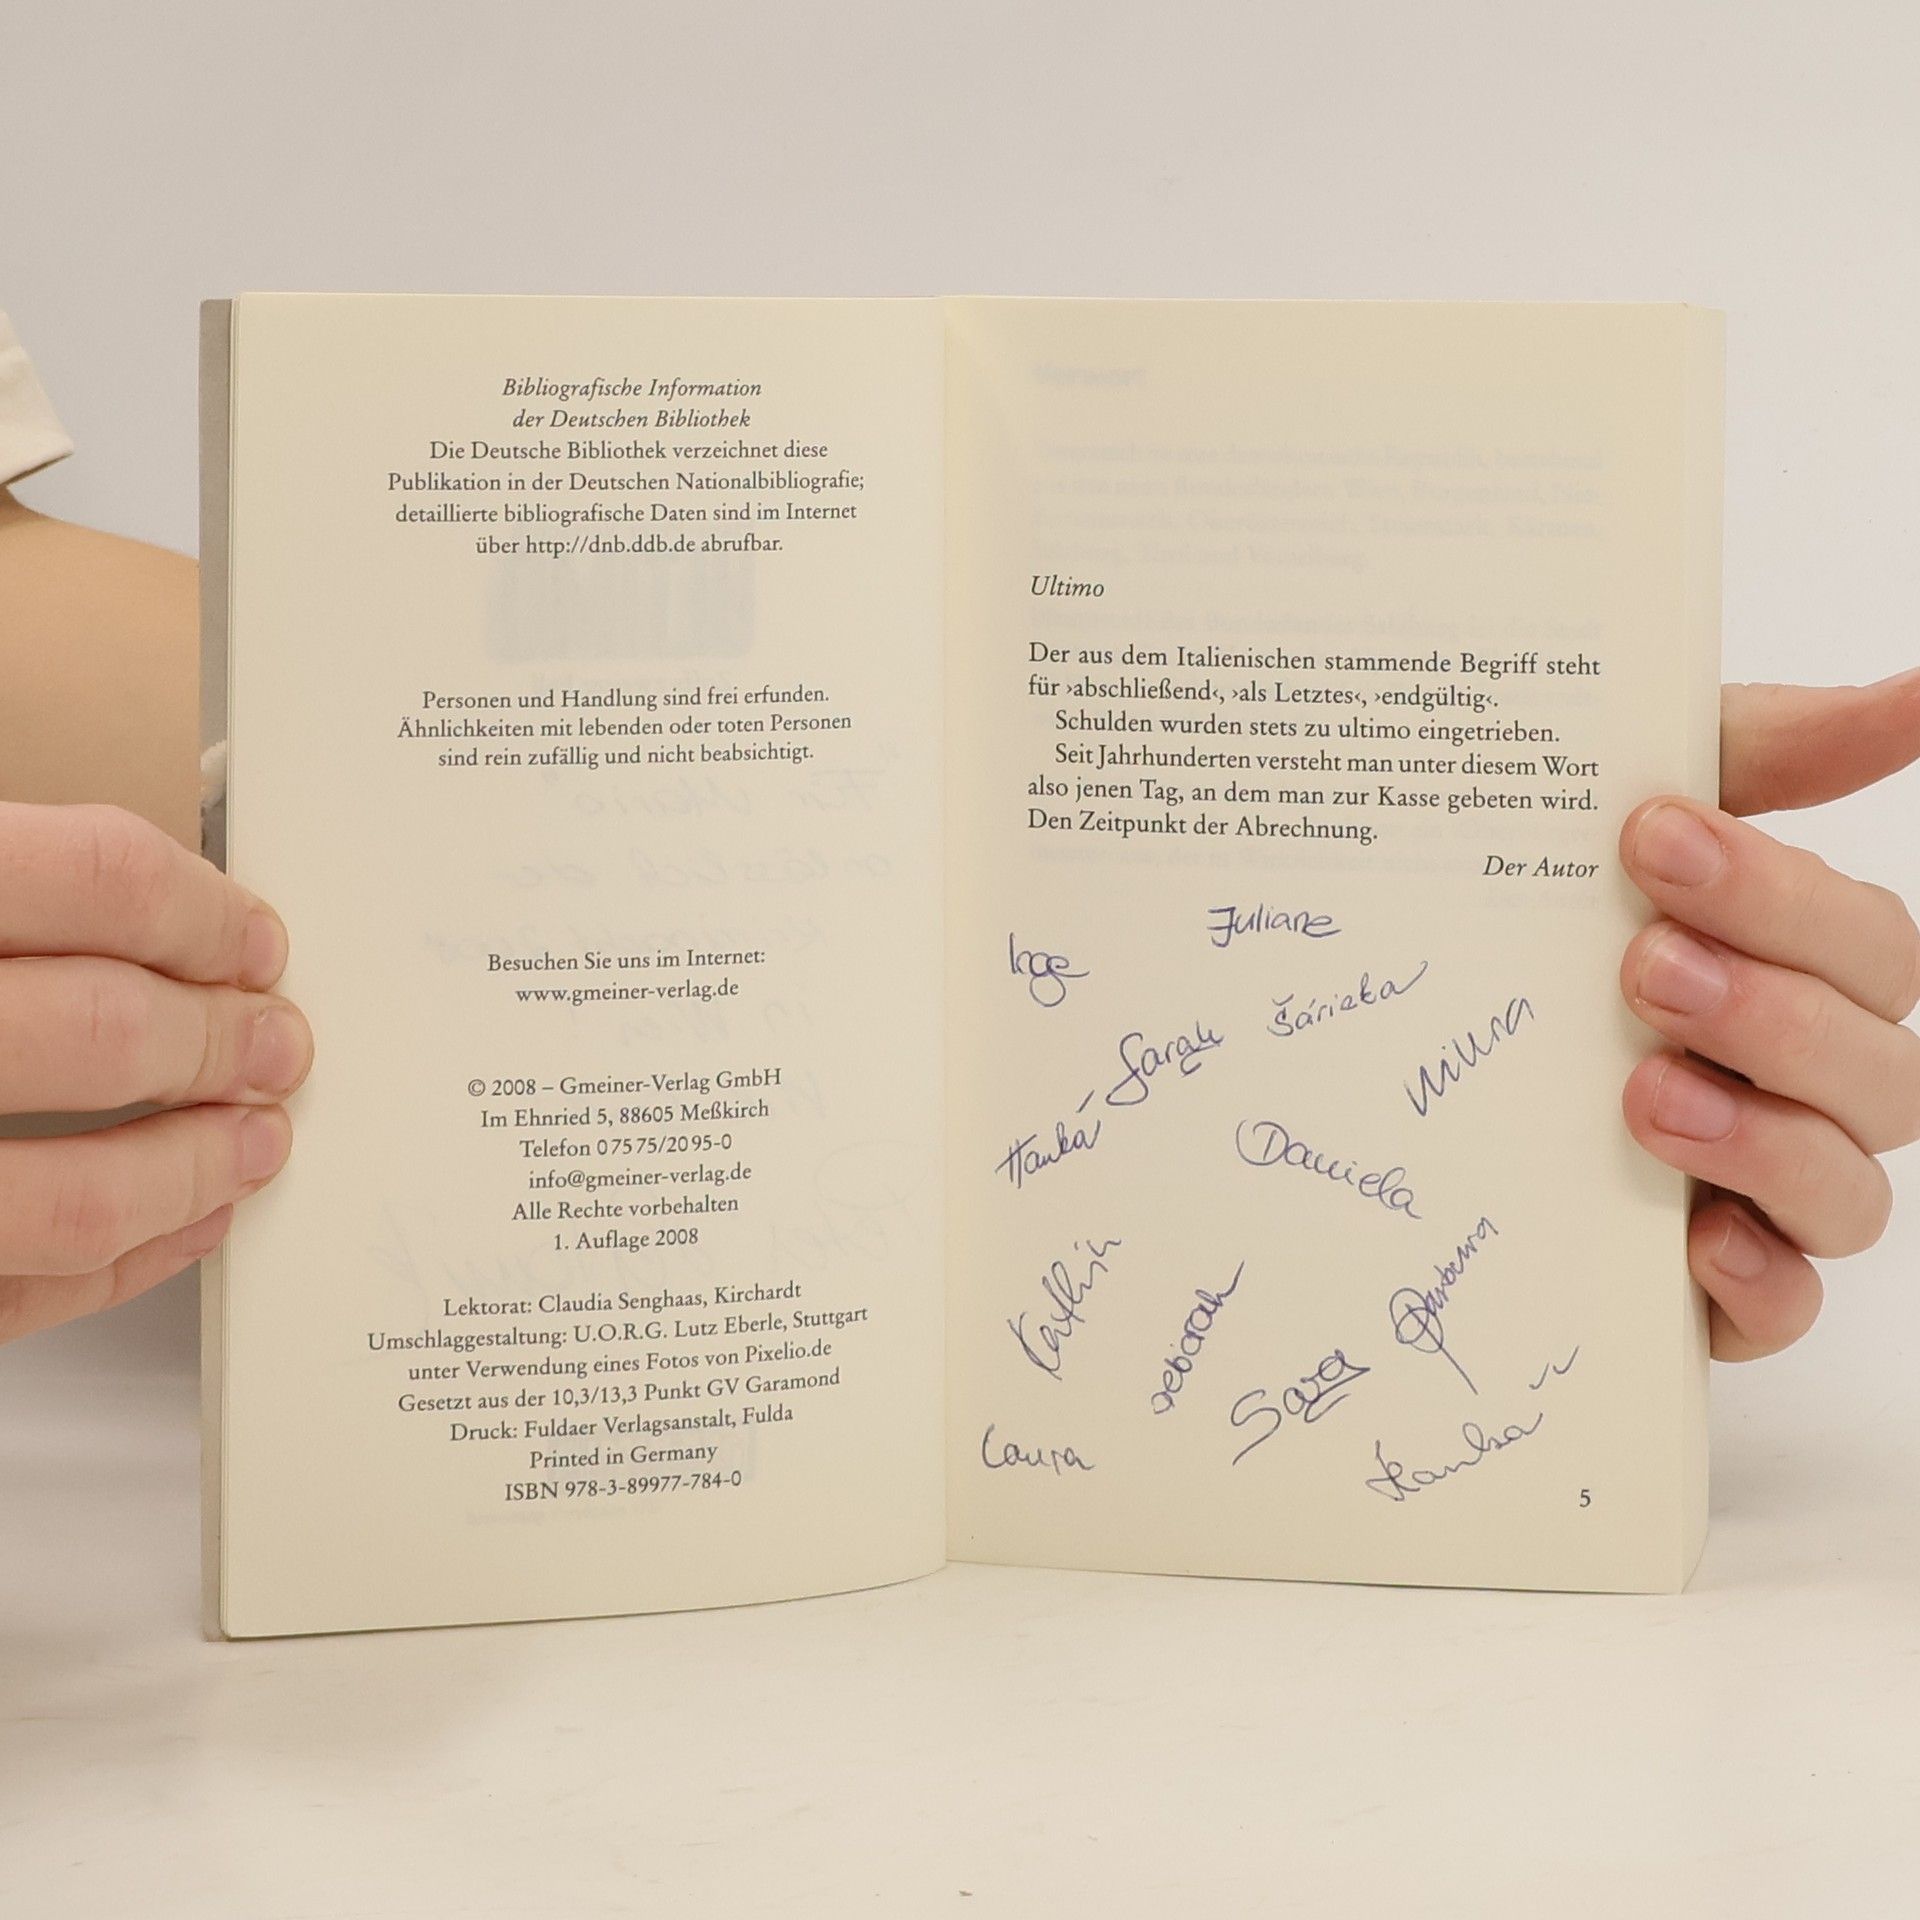 Bibliografische Information
der Deutschen Bibliothek
Die Deutsche Bibliothek verzeichnet diese
Publikation in der Deutschen Nationalbibliografie;
detaillierte bibliografische Daten sind im Internet
über http://dnb.ddb.de abrufbar.
Personen und Handlung sind frei erfunden.
Ähnlichkeiten mit lebenden oder toten Personen
sind rein zufällig und nicht beabsichtigt.
Besuchen Sie uns im Internet:
www.gmeiner-verlag.de
© 2008 – Gmeiner-Verlag GmbH
Im Ehnried 5, 88605 Meßkirch
Telefon 07575/2095-0
info@gmeiner-verlag.de
Alle Rechte vorbehalten
1. Auflage 2008
Lektorat: Claudia Senghaas, Kirchardt
Umschlaggestaltung: U.O.R.G. Lutz Eberle, Stuttgart
unter Verwendung eines Fotos von Pixelio.de
Gesetzt aus der 10,3/13,3 Punkt GV Garamond
Druck: Fuldaer Verlagsanstalt, Fulda
Printed in Germany
ISBN 978-3-89977-784-0
Ultimo
Der aus dem Italienischen stammende Begriff steht
für ›abschließend‹, ›als Letztes‹, ›endgültig‹.
Schulden wurden stets zu ultimo eingetrieben.
Seit Jahrhunderten versteht man unter diesem Wort
also jenen Tag, an dem man zur Kasse gebeten wird.
Den Zeitpunkt der Abrechnung.
Der Autor
Juliane
Inge
Šárieka
Sarah
Daniela
Kathrin
Deborah
Barbara
Sara
Laura
5